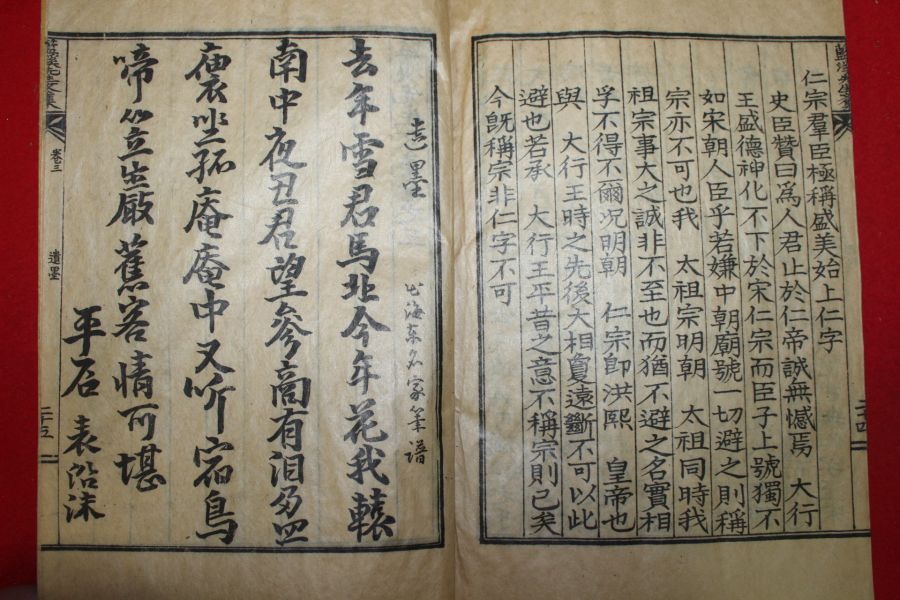 仁宗羣臣極稱盛美始上仁字
史臣贊曰為人君止於仁帝誠無憾焉　大行
王盛德神化不下於宋仁宗而臣子上號獨不
如宋朝人臣乎若嫌中朝廟號一切避之則稱
宗亦不可也我　太祖宗明朝　太祖同時我
祖宗事大之誠非不至也而猶不避之名實相
孚不得不爾况明朝　仁宗即洪熙　皇帝也
與　大行王時之先後大相夐遠斷不可以此
避也若承　大行王平昔之意不稱宗則已矣
今旣稱宗非仁字不可
二十四
遺墨　出海東名家筆譜
去年雪君馬北今年花我轅
南中夜丑君望參商有泪勿
庙裏坐孤庵庵中又听宿鳥
啼笠生嚴舊客情可堪
平石　表沿沫
卷三
遺墨
二十五